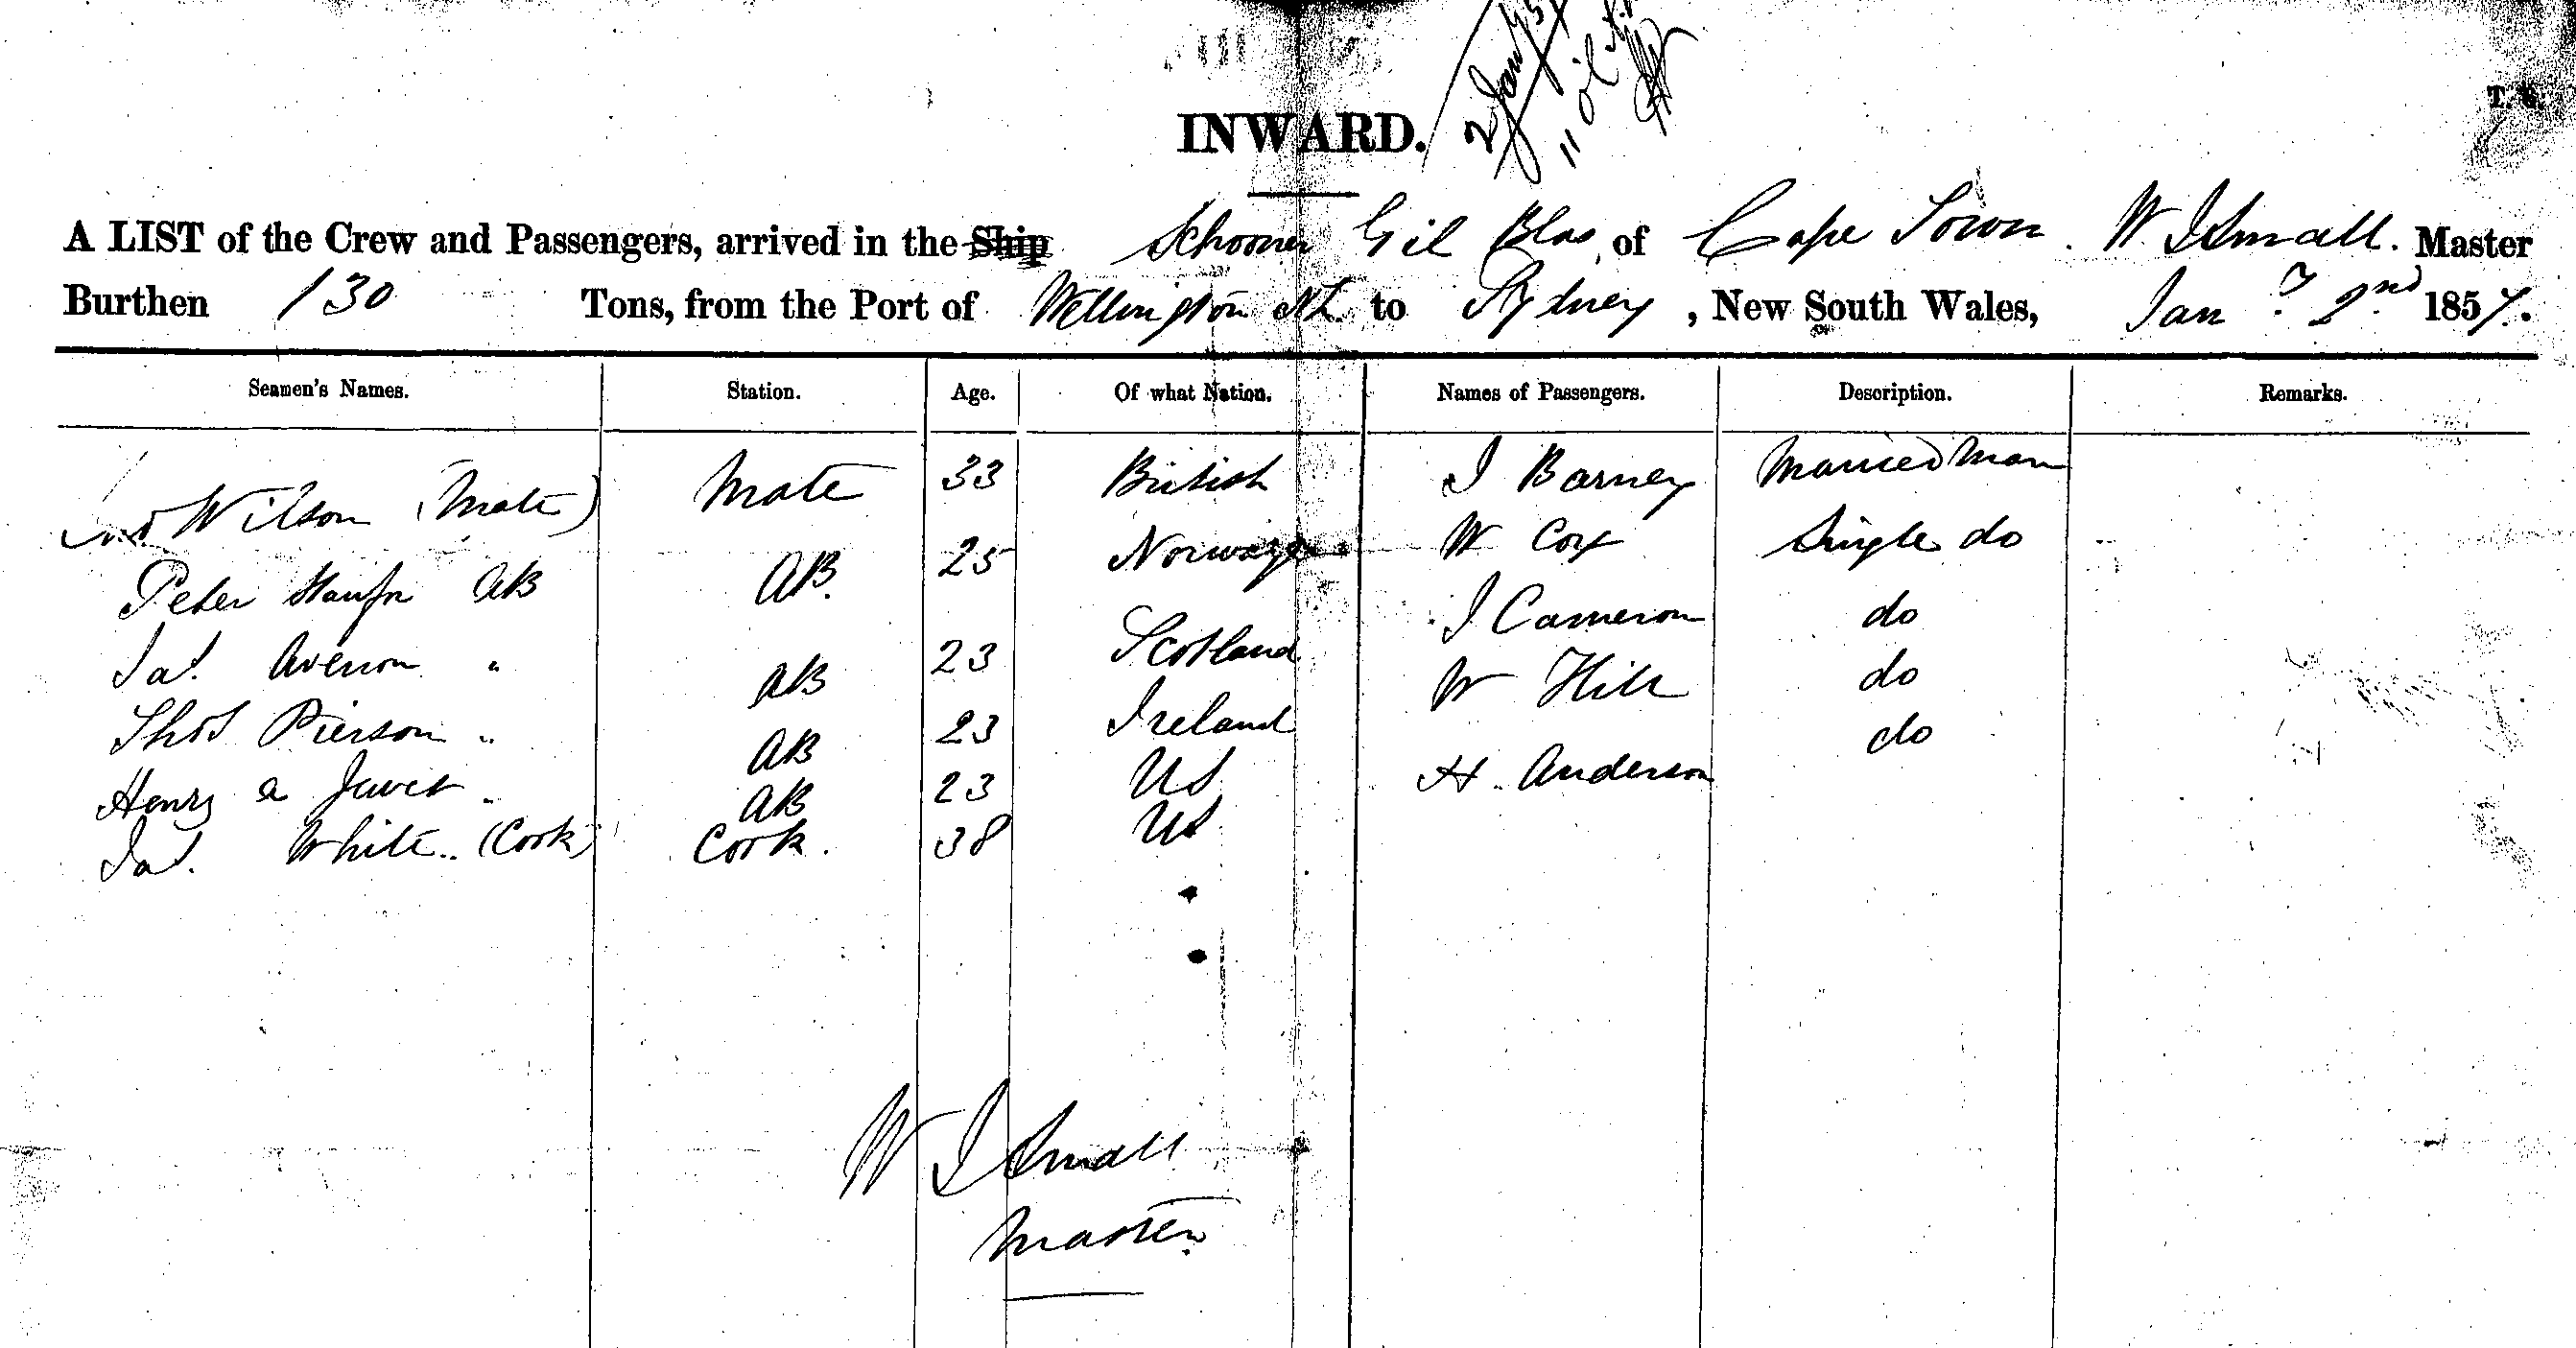 INWARD.
A LIST of the Crew and Passengers, arrived in the Ship Schooner Gil Blas, of Cape Town. W. J Small. Master
Burthen 130 Tons, from the Port of Wellington NZ to Sydney, New South Wales, Jany. 2nd 1857.
Seamen's Names. Station. Age. Of what Nation. Names of Passengers. Description. Remarks.
Wilson (Mate) Mate 33 British J Barney Married Man
Peter AB AB. 25 W Cox Single do
Jas. Averion " AB 23 Scotland J Cameron do
Thos Pierson " AB 23 Ireland W Hill do
Henry a " AB 23 US H. Anderson do
Jas. White (Cook) Cook. 38 US
W J Small
Master